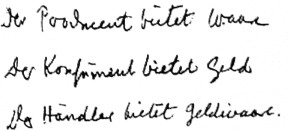 Der Produzent bietet Ware
Der Konsument bietet Geld
Der Händler bietet Geldware.